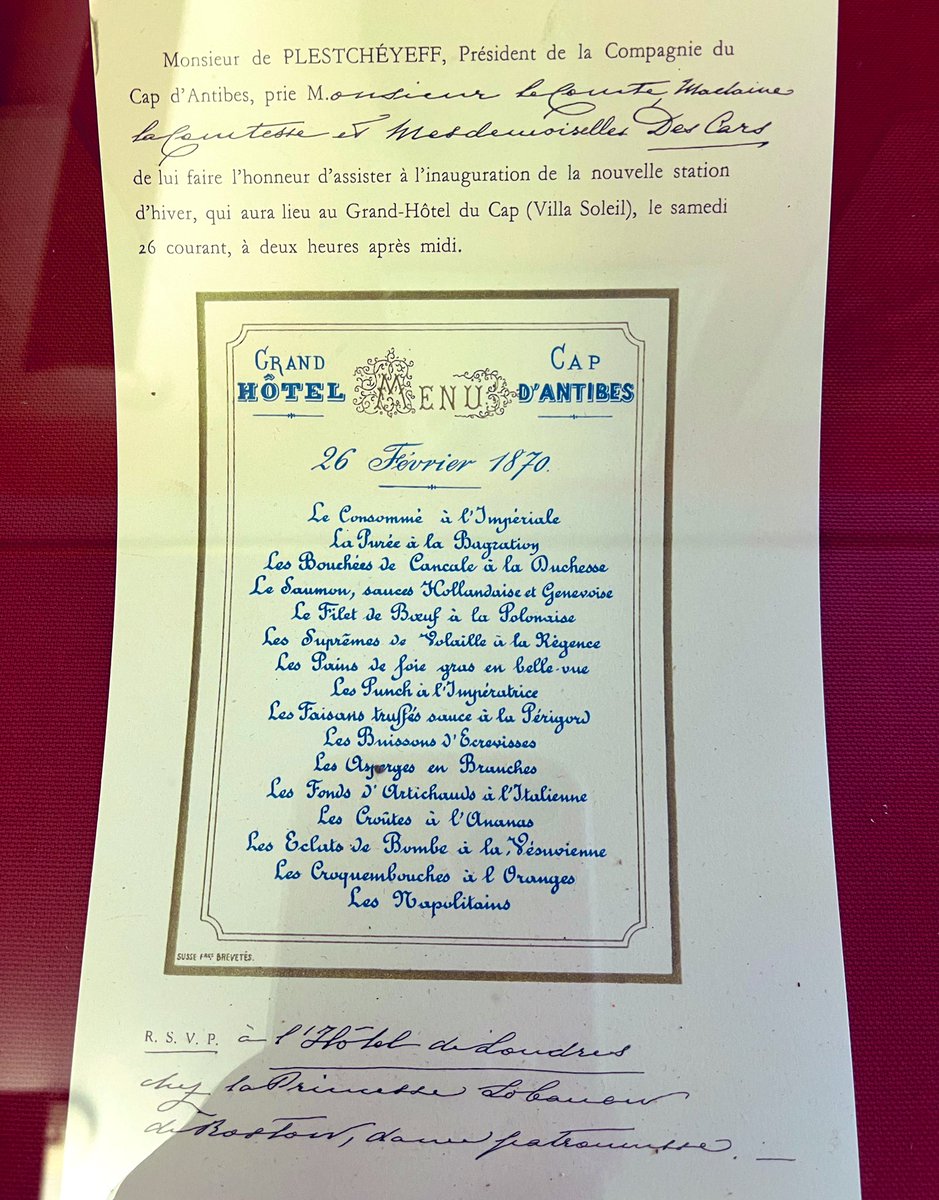 Monsieur de PLESTCHÉYEFF, Président de la Compagnie du
Cap d'Antibes, prie M.onsieur le Comte, Madame
la Comtesse et Mesdemoiselles Des Cars
de lui faire l'honneur d'assister à l'inauguration de la nouvelle station
d'hiver, qui aura lieu au Grand-Hôtel du Cap (Villa Soleil), le samedi
26 courant, à deux heures après midi.
GRAND HÔTEL
MENU
CAP D'ANTIBES
26 Février 1870.
Le Consommé à l'Impériale
La Purée à la Bagration
Les Bouchées de Cancale à la Duchesse
Le Saumon, sauces Hollandaise et Genevoise
Le Filet de Bœuf à la Polonaise
Les Suprêmes de Volaille à la Régence
Les Pains de foie gras en belle-vue
Les Punch à l'Impératrice
Les Faisans truffés sauce à la Périgord
Les Buissons d'Ecrevisses
Les Asperges en Branches
Les Fonds d'Artichauds à l'Italienne
Les Croûtes à l'Ananas
Les Eclats de Bombe à la Vésuvienne
Les Croquembouches à l Oranges
Les Napolitains
SUSSE FRES BREVETÉS.
R. S. V. P. à l'Hôtel de Londres
chez la Princesse Lobanow
de Rostow, dame patronnesse. —